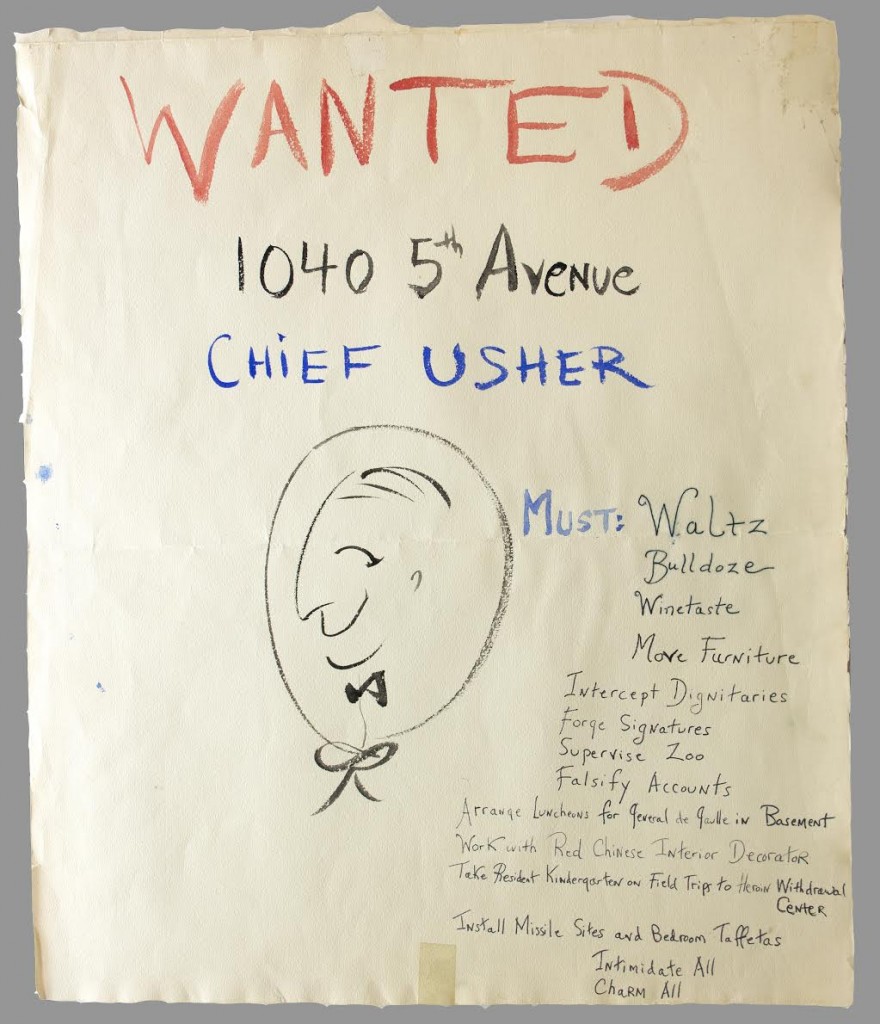 WANTED
1040 5th Avenue
CHiEF USHER
MUST: Waltz
Bulldoze
Winetaste
Move Furniture
Intercept Dignitaries
Forge Signatures
Supervise Zoo
Falsify Accounts
Arrange Luncheons for General de Gaulle in Basement
Work with Red Chinese Interior Decorator
Take Resident Kindergarten on Field Trips to Heroin Withdrawal
Center
Install Missile Sites and Bedroom Taffetas
Intimidate All
Charm All